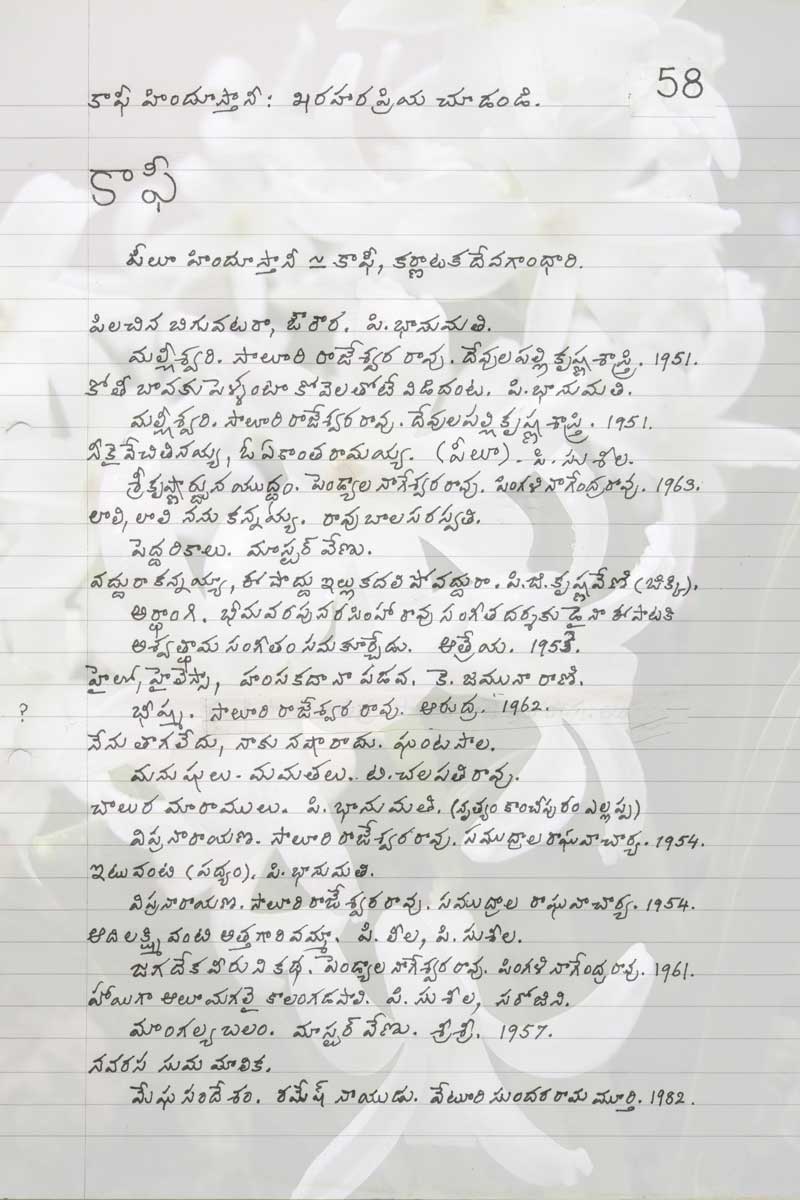 58
కాఫీ హిందూస్తానీ: ఖరహారప్రియ చూడండి.
కాఫీ
పీలూ హిందూస్తానీ ~ కాఫీ, కర్ణాటక దేవగాంధారి.
పిలచిన బిగువటరా, ఔరౌర. పి. భానుమతి.
మల్లీశ్వరి. సాలూరి రాజేశ్వర రావు. దేవులపల్లి కృష్ణ శాస్త్రి. 1951.
కోతీ బావకు పెళ్ళంటా కోవెలతోట విడిదంట. పి. భానుమతి.
మల్లీశ్వరి. సాలూరి రాజేశ్వర రావు. దేవులపల్లి కృష్ణ శాస్త్రి. 1951.
నీకై వేచితినయ్య, ఓ ఏకాంత రామయ్య. (పీలూ). పి. సుశీల.
శ్రీకృష్ణార్జున యుద్ధం. పెండ్యాల నాగేశ్వర రావు. పింగళి నాగేంద్ర రావు. 1963.
లాలి, లాలి నను కన్నయ్య. రావు బాలసరస్వతి.
పెద్దరికాలు. మాస్టర్ వేణు.
వద్దురా కన్నయ్యా, ఈ పొద్దు ఇల్లు కదలి పోవద్దురా. పి.జి. కృష్ణవేణి (జిక్కి).
అర్ధాంగి. భీమవరపు నరసింహా రావు సంగీత దర్శకుడైనా ఈ పాటకి
అశ్వత్థామ సంగీతం సమకూర్చేడు. ఆత్రేయ.
హైలో, హైలెస్సా, హంసకదా నా పడవ. కె. జమునా రాణి.
? భీష్మ. సాలూరి రాజేశ్వర రావు. ఆరుద్ర. 1962.
నేను తాగలేదు, నాకు నషా రాదు. ఘంటసాల.
మనుషులు - మమతలు. టి. చలపతి రావు.
చాలుర మారాములు. పి. భానుమతి. (నృత్యం కాంచీపురం ఎల్లప్ప)
విప్రనారాయణ. సాలూరి రాజేశ్వర రావు. సముద్రాల రాఘవాచార్య. 1954.
ఇటువంటి (పద్యం). పి. భానుమతి.
విప్రనారాయణ. సాలూరి రాజేశ్వర రావు. సముద్రాల రాఘవాచార్య. 1954.
ఆదిలక్ష్మి వంటి అత్తగారివమ్మా. పి. లీల, పి. సుశీల.
జగదేక వీరుని కథ. పెండ్యాల నాగేశ్వర రావు. పింగళి నాగేంద్ర రావు. 1961.
హాయిగా ఆలుమగలై కాలం గడపాలి. పి. సుశీల, సరోజిని.
మాంగల్య బలం. మాస్టర్ వేణు. శ్రీశ్రీ. 1957.
నవరస సుమ మాలిక.
మేఘ సందేశం. రమేష్ నాయుడు. వేటూరి సుందర రామ మూర్తి. 1982.